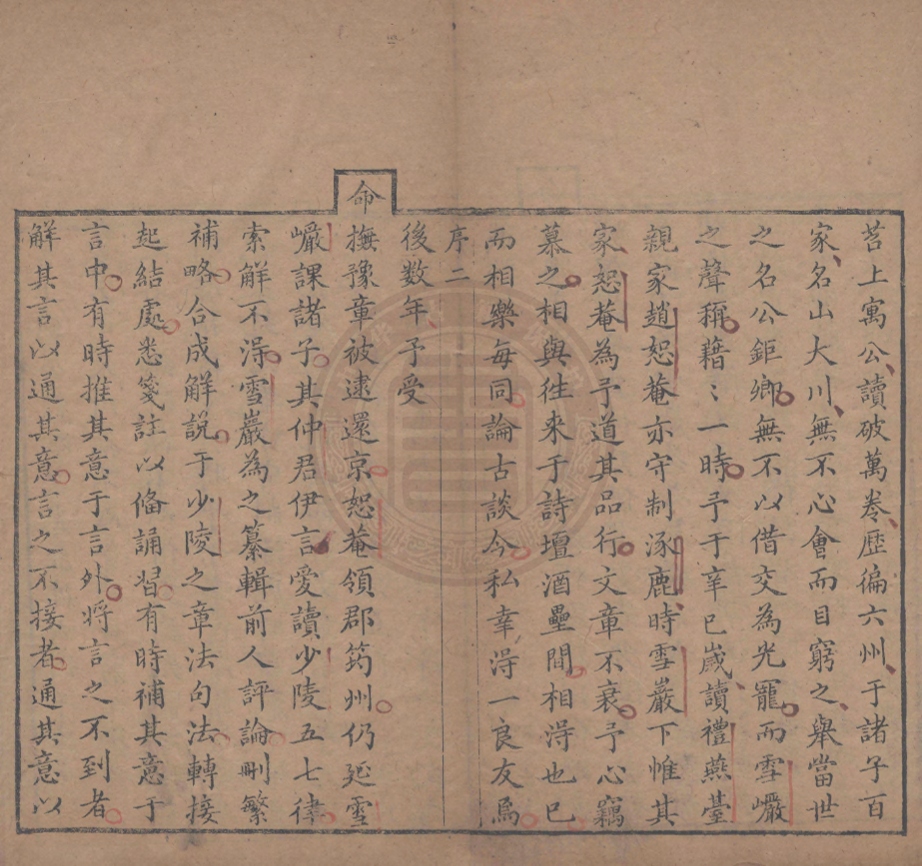 苕上寓公讀破萬卷歷徧六州于諸子百
家名山大川無不心會而目窮之舉當世
之名公鉅卿無不以借交為光寵而雪巖
之聲稱藉〻一時予于辛巳歲讀禮燕臺
親家趙恕菴亦守制涿鹿時雪巖下帷其
家恕菴為予道其品行文章不衰予心竊
慕之相與徃來于詩壇酒壘間相淂也已
而相樂每同論古談今私幸淂一良友焉
序二
後数年予受
命撫豫章被逮還京恕菴領郡筠州仍延雪
巖課諸子其仲君伊言愛讀少陵五七律
索解不淂雪巖為之纂輯前人評論刪繁
補略合成解説于少陵之章法句法轉接
起結處悉箋註以俻誦習有時補其意于
言中有時推其意于言外将言之不到者
解其言以通其意言之不接者通其意以